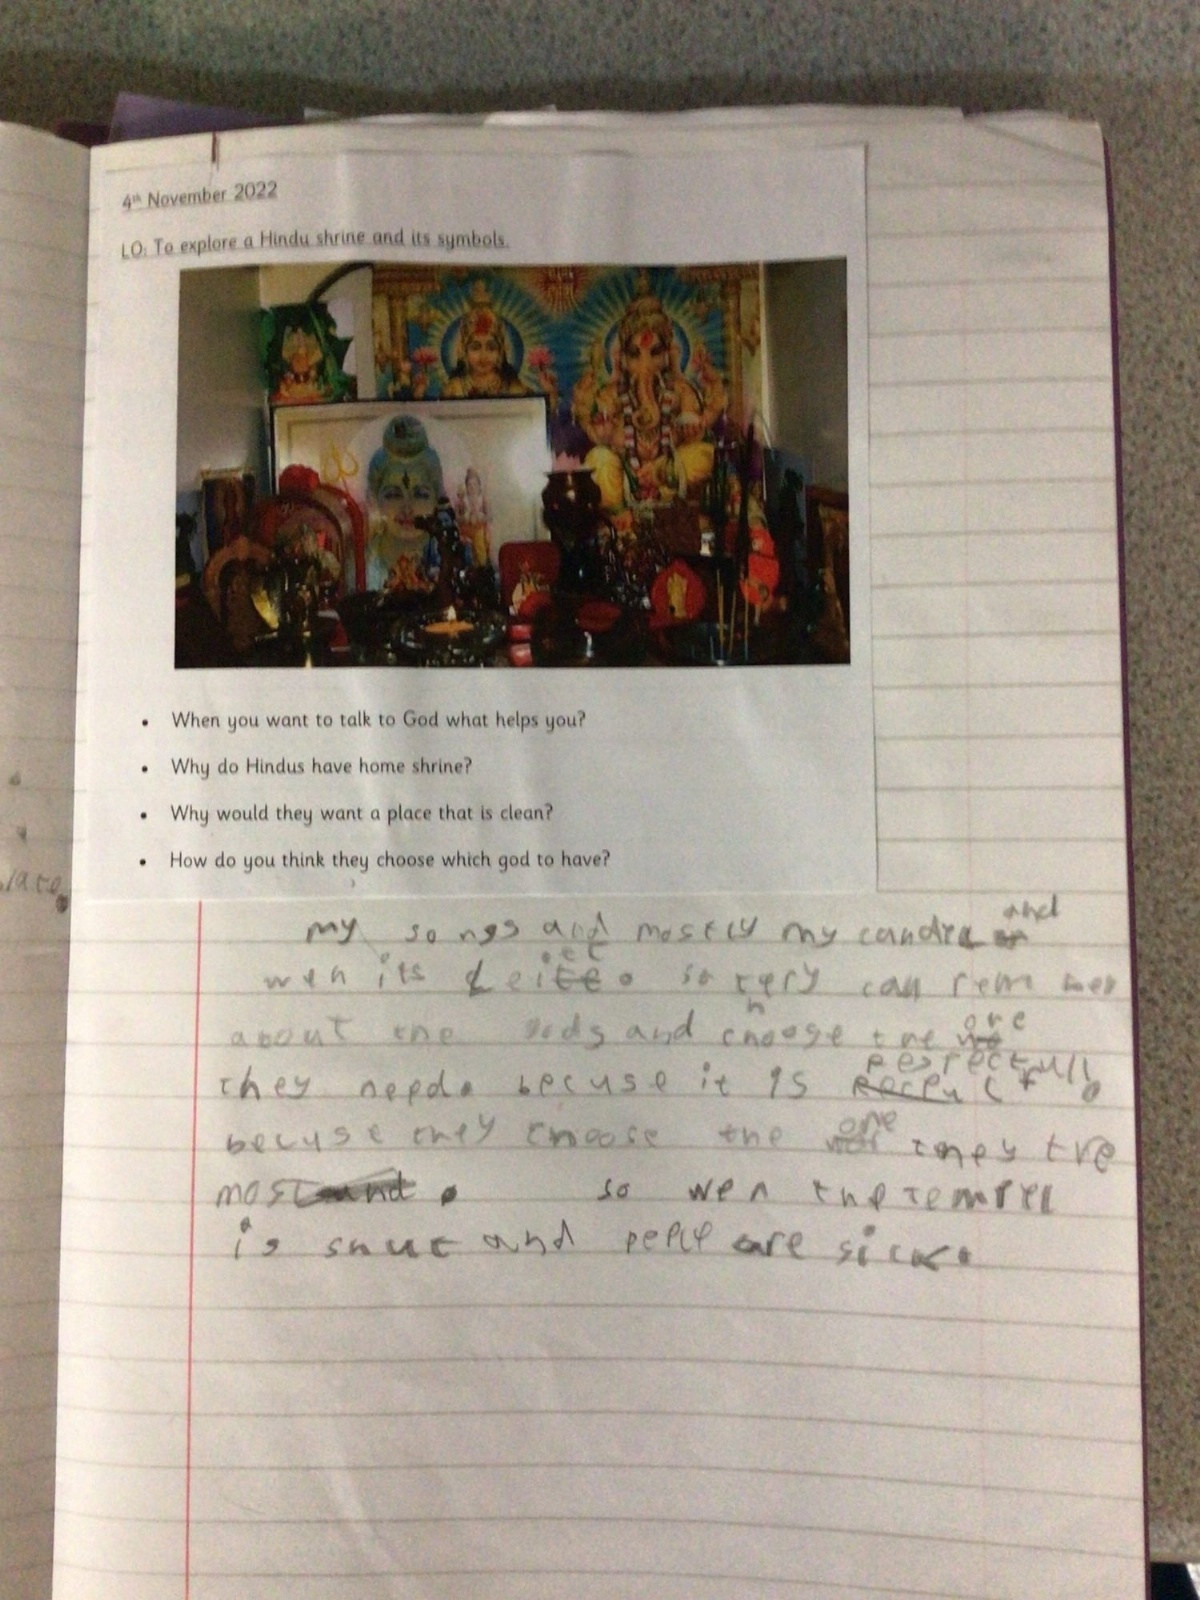 4th November 2022
LO: To explore a Hindu shrine and its symbols.
When you want to talk to God what helps you?
Why do Hindus have home shrine?
Why would they want a place that is clean?
How do you think they choose which god to have?
my songs and mostly my candle and
wen its so they can rem ber
about the gods and choose the one
they need. becuse it is
becuse they choose the one they
most. so wen the
is shut and are sick.